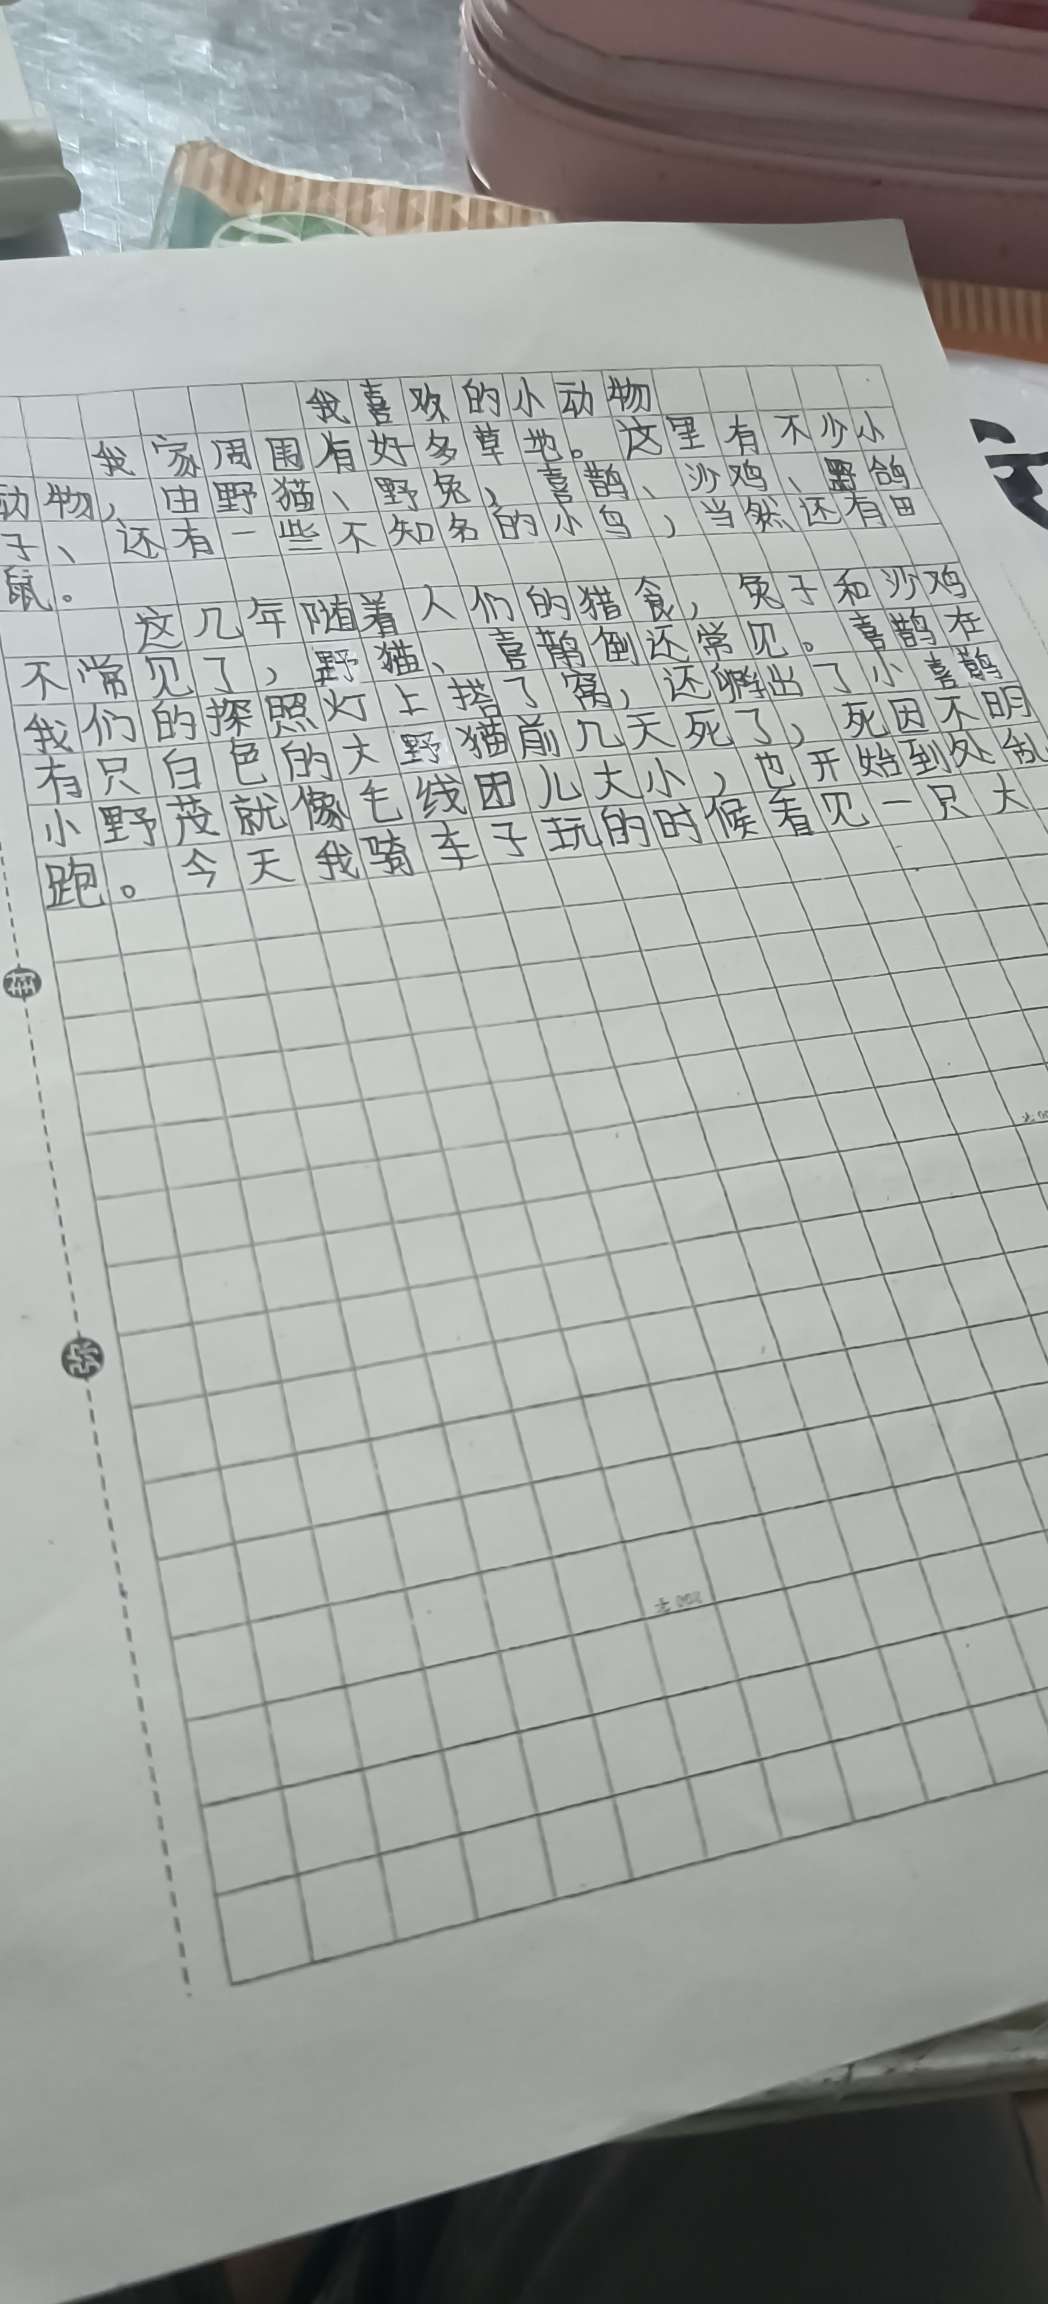 我喜欢的小动物
我家周围有好多草地。这里有不少小
动物，由野猫、野兔、喜鹊、沙鸡、野鸽
子、还有一些不知名的小鸟，当然还有田
鼠。
这几年随着人们的猎食，兔子和沙鸡
不常见了，野猫、喜鹊倒还常见。喜鹊在
我们的探照灯上搭了窝，还孵出了小喜鹊
有只白色的大野猫前几天死了，死因不明
小野茂就像毛线团儿大小，也开始到处乱
跑。今天我骑车子玩的时候看见一只大